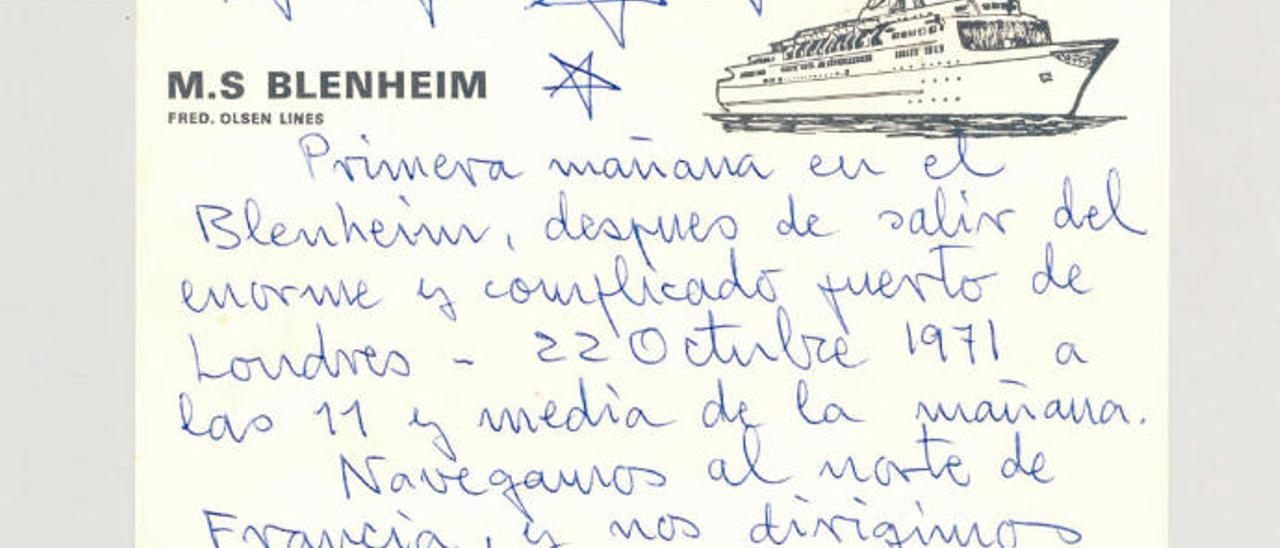 M.S BLENHEIM
FRED. OLSEN LINES
Primera mañana en el
Blenheim, despues de salir del
enorme y complicado puerto de
Londres - 22 Octubre 1971 a
las 11 y media de la mañana.
Navegamos al norte de
Francia, y nos dirigimos